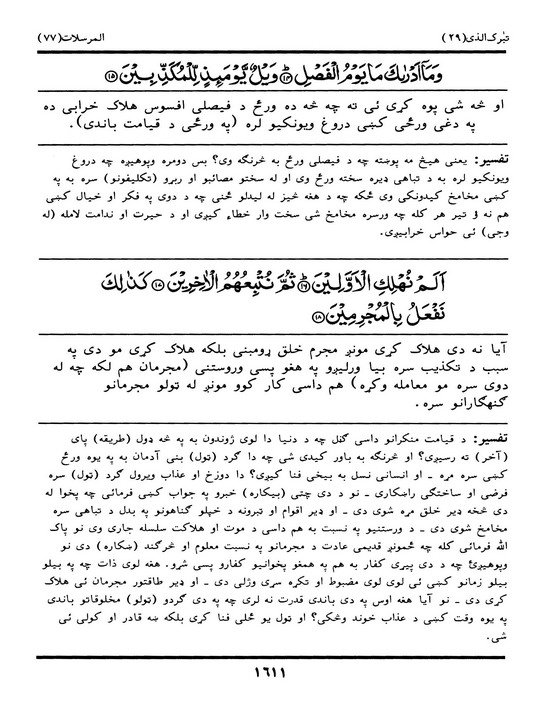 تبٰرك الذى (٢٩) المرسلات (٧٧)
وَمَآ اَدْرٰىكَ مَا يَوْمُ الْفَصْلِ ﴿١٤﴾ وَيْلٌ يَّوْمَىِٕذٍ لِّلْمُكَذِّبِيْنَ ﴿١٥﴾
او څه شى پوه كړى ئى ته چه څه ده ورځ د فيصلى افسوس هلاك خرابى ده
په دغى ورځى كښى دروغ ويونكيو لره (په ورځى د قيامت باندى).
تفسير: يعنى هيڅ مه پوښته چه د فيصلى ورځ به څرنګه وى؟ بس دومره وپوهيږه چه دروغ
ويونكيو لره به د تباهى ډيره سخته ورځ وى او له سختو مصائبو او ربړو (تكليفونو) سره به په
كښى مخامخ كيدونكى وى ځكه چه د هغه څيز له ليدلو ځنى چه د دوى په فكر او خيال كښى
هم نه ؤ تير هر كله چه ورسره مخامخ شى سخت وار خطاء كيږى او د حيرت او ندامت لامله (له
وجى) ئى حواس خرابيږى.
اَلَمْ نُهْلِكِ الْاَوَّلِيْنَ ﴿١٦﴾ ثُمَّ نُتْبِعُهُمُ الْاٰخِرِيْنَ ﴿١٧﴾ كَذٰلِكَ
نَفْعَلُ بِالْمُجْرِمِيْنَ ﴿١٨﴾
آيا نه دى هلاك كړى مونږ مجرم خلق ړومبنى بلكه هلاك كړى مو دى په
سبب د تكذيب سره بيا ورليږو په هغو پسى وروستنى (مجرمان هم لكه چه له
دوى سره مو معامله وكړه) هم داسى كار كوو مونږ له ټولو مجرمانو
ګنهګارانو سره.
تفسير: د قيامت منكرانو داسى ګڼل چه د دنيا دا لوى ژوندون به په څه ډول (طريقه) پاى
(آخر) ته رسيږى؟ او څرنګه به باور كيدى شى چه دا ګرد (ټول) بنى آدمان به په يوه ورځ
كښى سره مړه ـ او انسانى نسل به بيخى فنا كيږى؟ دا دوزخ او عذاب ويرول ګرد (ټول) سره
فرضى او ساختګى راښكارى ـ نو د دى چتى (بيكاره) خبرو په جواب كښى فرمائى چه پخوا له
دى څخه ډير خلق مړه شوى دى ـ او ډير اقوام او ټبرونه د خپلو ګناهونو په بدل د تباهى سره
مخامخ شوى دى ـ د ورستنيو په نسبت به هم داسى د موت او هلاكت سلسله جارى وى نو پاك
الله فرمائى كله چه څمونږ قديمى عادت د مجرمانو په نسبت معلوم او څرګند (ښكاره) دى نو
وپوهيږئ چه د دى پيړى كفار به هم په همغو پخوانيو كفارو پسى شړو. هغه لوى ذات چه په بيلو
بيلو زمانو كښى ئى لوى لوى مضبوط او تكړه سړى وژلى دى ـ او ډير طاقتور مجرمان ئى هلاك
كړى دى ـ نو آيا هغه اوس په دى باندى قدرت نه لرى چه په دى ګردو (ټولو) مخلوقاتو باندى
په يوه وقت كښى د عذاب خوند وڅكى؟ او ټول يو ځلى فنا كړى بلكه ښه قادر او كولى ئى
شى.
١٦١١